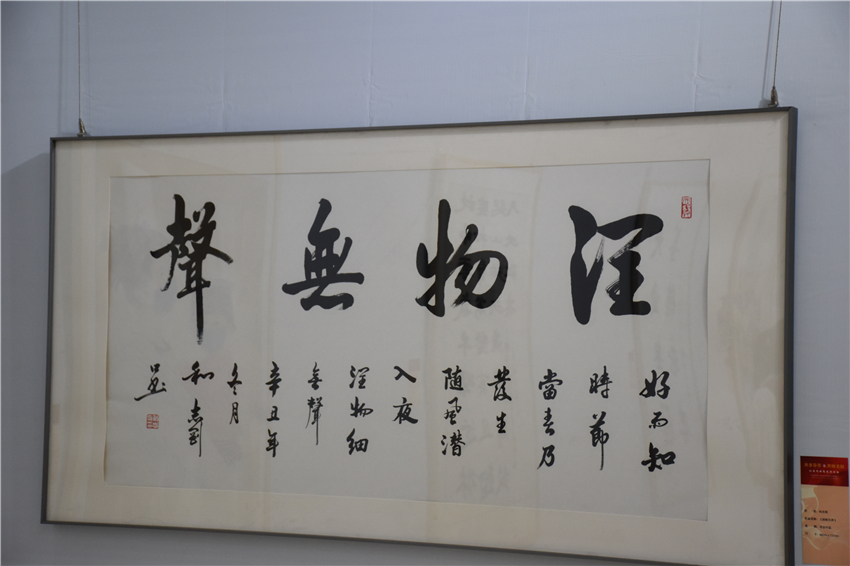 潤物無聲
好雨知
時節
當春乃
發生
随風潛
入夜
潤物細
無聲
辛丑年
冬月
和志剛